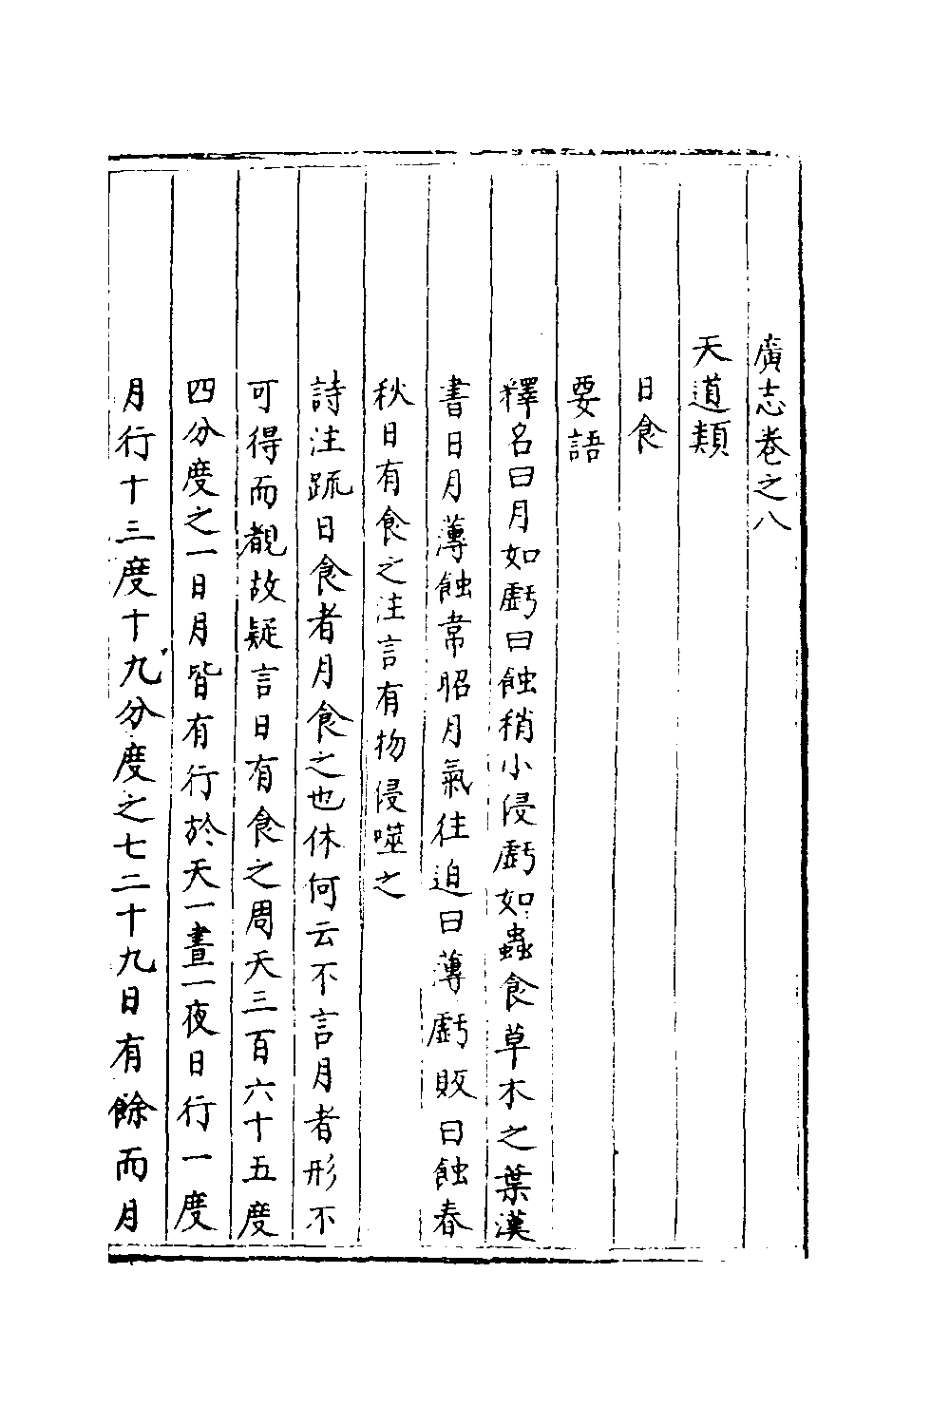 廣志卷之八
天道類
日食
要語
釋名曰月如虧曰蝕稍小侵虧如蟲食草木之葉漢
書日月薄蝕韋昭月氣往迫曰薄虧敗曰蝕春
秋日有食之注言有物侵噬之
詩注䟽日食者月食之也休何云不言月者形不
可得而覩故疑言日有食之周天三百六十五度
四分度之一日月皆有行於天一晝一夜日行一度
月行十三度十九分度之七二十九日有餘而月